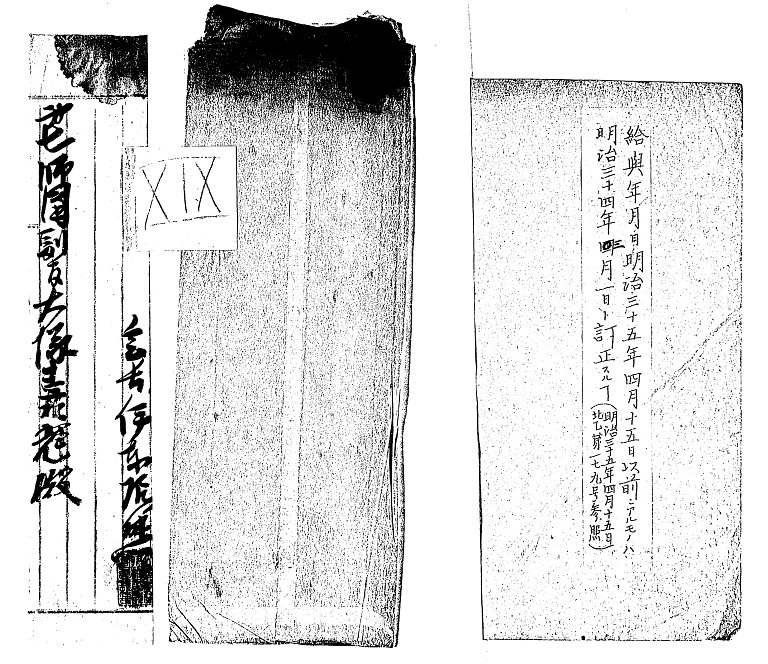 給與年月日明治三十五年四月十五日以前ニアルモノハ
明治三十四年三月一日ト訂正スルヿ(明治三十五年四月十五日
北乙第一七九号参照)
XIX
会長伊東
副官大塚嘉 殿